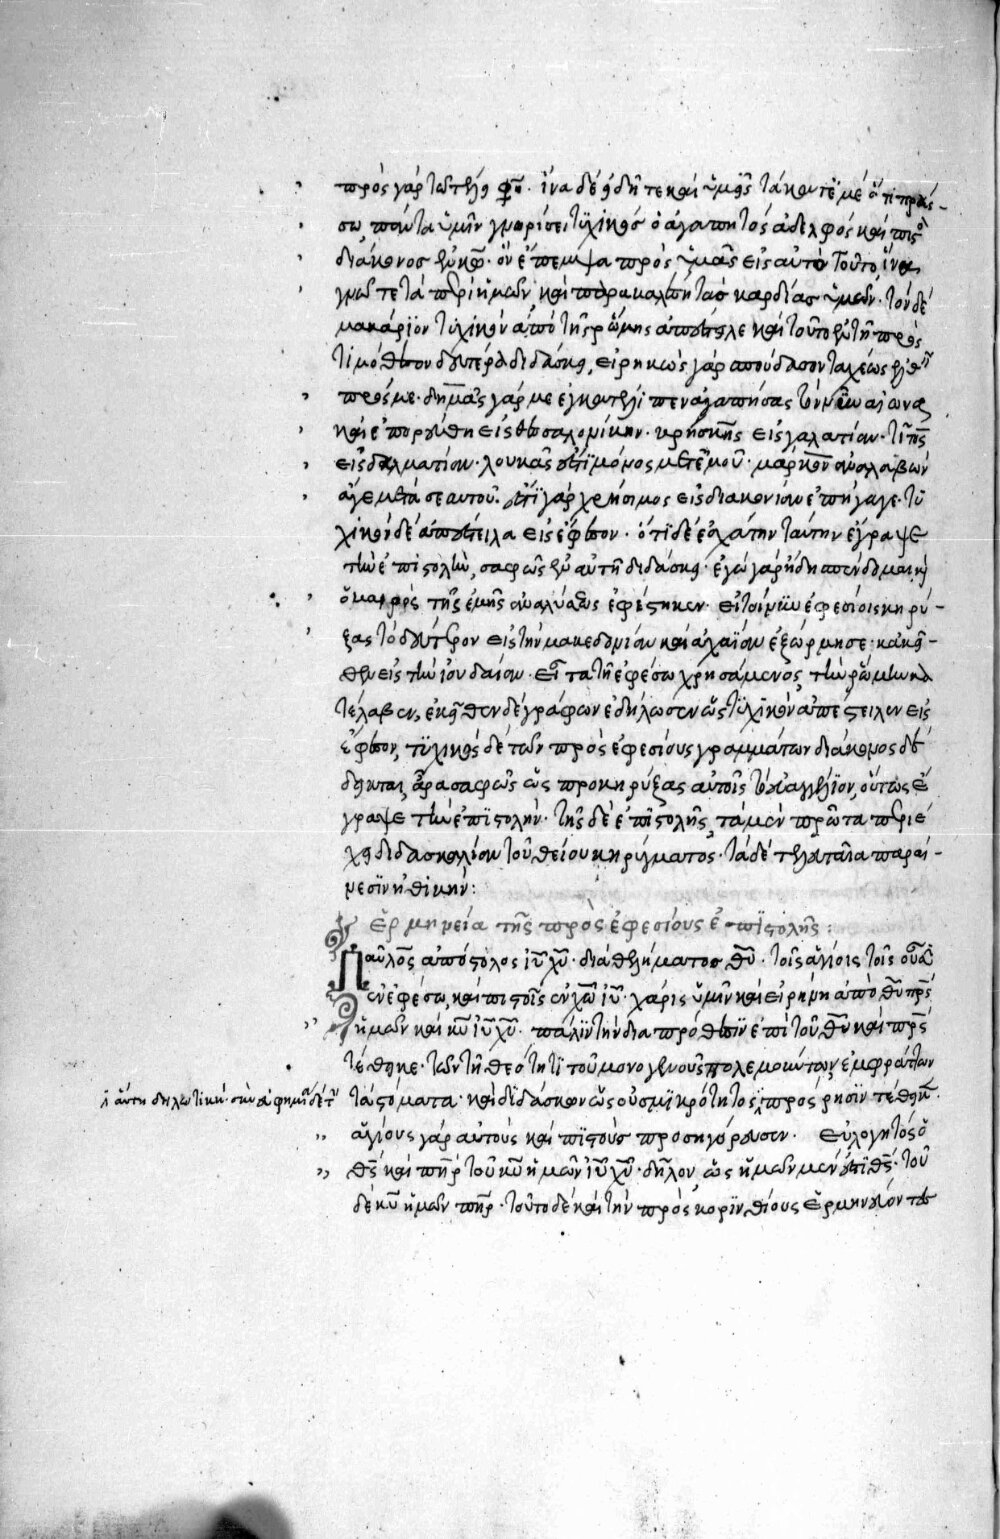 πρὸς γὰρ τῷ τέλει φησίν· ἵνα δὲ εἰδῆτε καὶ ὑμεῖς τὰ κατ' ἐμὲ ὅ τι πράς-
σω, πάντα ὑμῖν γνωρίσει τυχικὸς ὁ ἀγαπητὸς ἀδελφὸς καὶ πιστὸς
διάκονος ἐν κῷ· ὃν ἔπεμψα πρὸς ὑμᾶς εἰς αὐτὸ τοῦτο, ἵνα
γνῶτε τὰ περὶ ἡμῶν, καὶ παρακαλέσῃ τὰς καρδίας ὑμῶν· τὸν δὲ
μακάριον τυχικὸν ἀπὸ τῆς ῥώμης ἀπέστειλε καὶ τοῦτο ἐν τῇ πρὸς
τιμόθεον δευτέρᾳ διδάσκει, εἰρηκὼς γὰρ σπούδασον ταχέως ἐλθεῖν
πρός με· δημᾶς γάρ με ἐγκατέλιπεν ἀγαπήσας τὸν νῦν αἰῶνα
καὶ ἐπορεύθη εἰς θεσαλονίκην· κρήσκης εἰς γαλατίαν· τίτος
εἰς δαλματίαν· λουκᾶς ἐστὶ μόνος μετ' ἐμοῦ· μάρκον ἀναλαβὼν
ἄγε μετὰ σεαυτοῦ. ἔστι γὰρ χρήσιμος εἰς διακονίαν ἐπήγαγε· τυ
χικὸν δὲ ἀπέστειλα εἰς ἔφεσον· ὅτι δὲ ἐσχάτην ταύτην ἔγραψε
τὴν ἐπιστολὴν, σαφῶς ἐν αὐτῇ διδάσκει· ἐγὼ γὰρ ἤδη σπένδομαι καὶ
ὁ καιρὸς τῆς ἐμῆς ἀναλύσεως ἐφέστηκεν· εἶτα μὲν ἐφεσίοις κηρύ-
ξας τὸ δεύτερον εἰς τὴν μακεδονίαν καὶ ἀχαΐαν ἐξώρμησε· κἀκεῖ-
θεν εἰς τὴν ἰουδαίαν. εἶτα τῇ ἐφέσῳ χρησάμενος, τὴν ῥώμην κα
τέλαβεν, ἐκεῖθεν δὲ γράφων ἐδήλωσεν ὡς τυχικὸν ἀπέστειλεν εἰς
ἔφεσον, τυχικὸς δὲ τῶν πρὸς ἐφεσίους γραμμάτων διάκονος δέ
δεικται, ἆρα σαφῶς ὡς προκηρύξας αὐτοῖς τὸ εὐαγγέλιον, οὕτως ἔ
γραψε τὴν ἐπιστολήν· τῆς δὲ ἐπιστολῆς, τὰ μὲν πρῶτα περιέ
χει διδασκαλίαν τοῦ θείου κηρύγματος· τὰ δὲ τελευταῖα παραί-
νεσιν ἠθικήν:
Ἑρμηνεία τῆς πρὸς ἐφεσίους ἐπιστολῆς:
Παῦλος ἀπόστολος ιυ χυ· διὰ θελήματος θυ· τοῖς ἁγίοις τοῖς οὖσιν
ἐν ἐφέσῳ, καὶ πιστοῖς ἐν χω ιυ· χάρις ὑμῖν καὶ εἰρήνη ἀπὸ θυ πρς
ἡμῶν καὶ κυ ιυ χυ· πάλιν τὴν δια πρόθεσιν ἐπὶ τοῦ θυ καὶ πρς
τέθεικε· τῶν τῇ θεότητι τοῦ μονογενοῦς πολεμούντων ἐμφράττων
τὰ στόματα· καὶ διδάσκων ὡς οὐ σμικρότητος ἡ πρόσρησιν τέθεικεν·
ἁγίους γὰρ αὐτοὺς καὶ πιστοὺς προσηγόρευσεν. Εὐλογητὸς ὁ
θς καὶ πηρ τοῦ κυ ἡμῶν ιυ χυ· δῆλον, ὡς ἡμῶν μέν ἐστι θς· τοῦ
δὲ κυ ἡμῶν πηρ· τοῦτο δὲ καὶ τὴν πρὸς κορινθίους ἑρμηνεύοντες